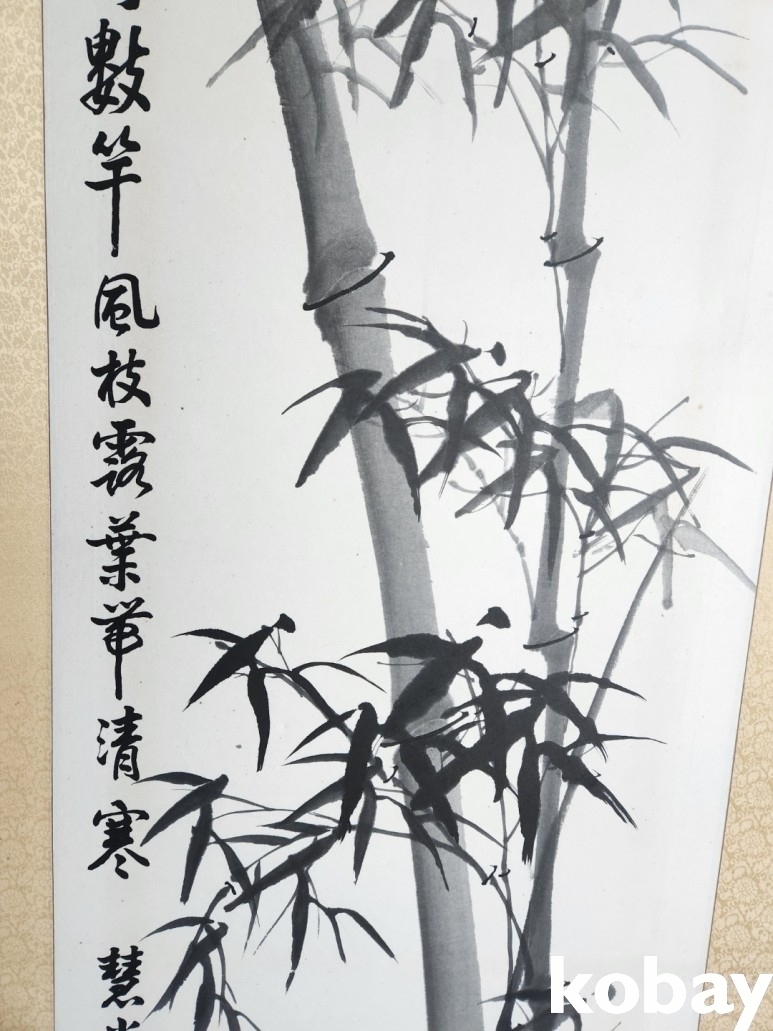 數竿風枝露葉帶清寒
慧
kobay